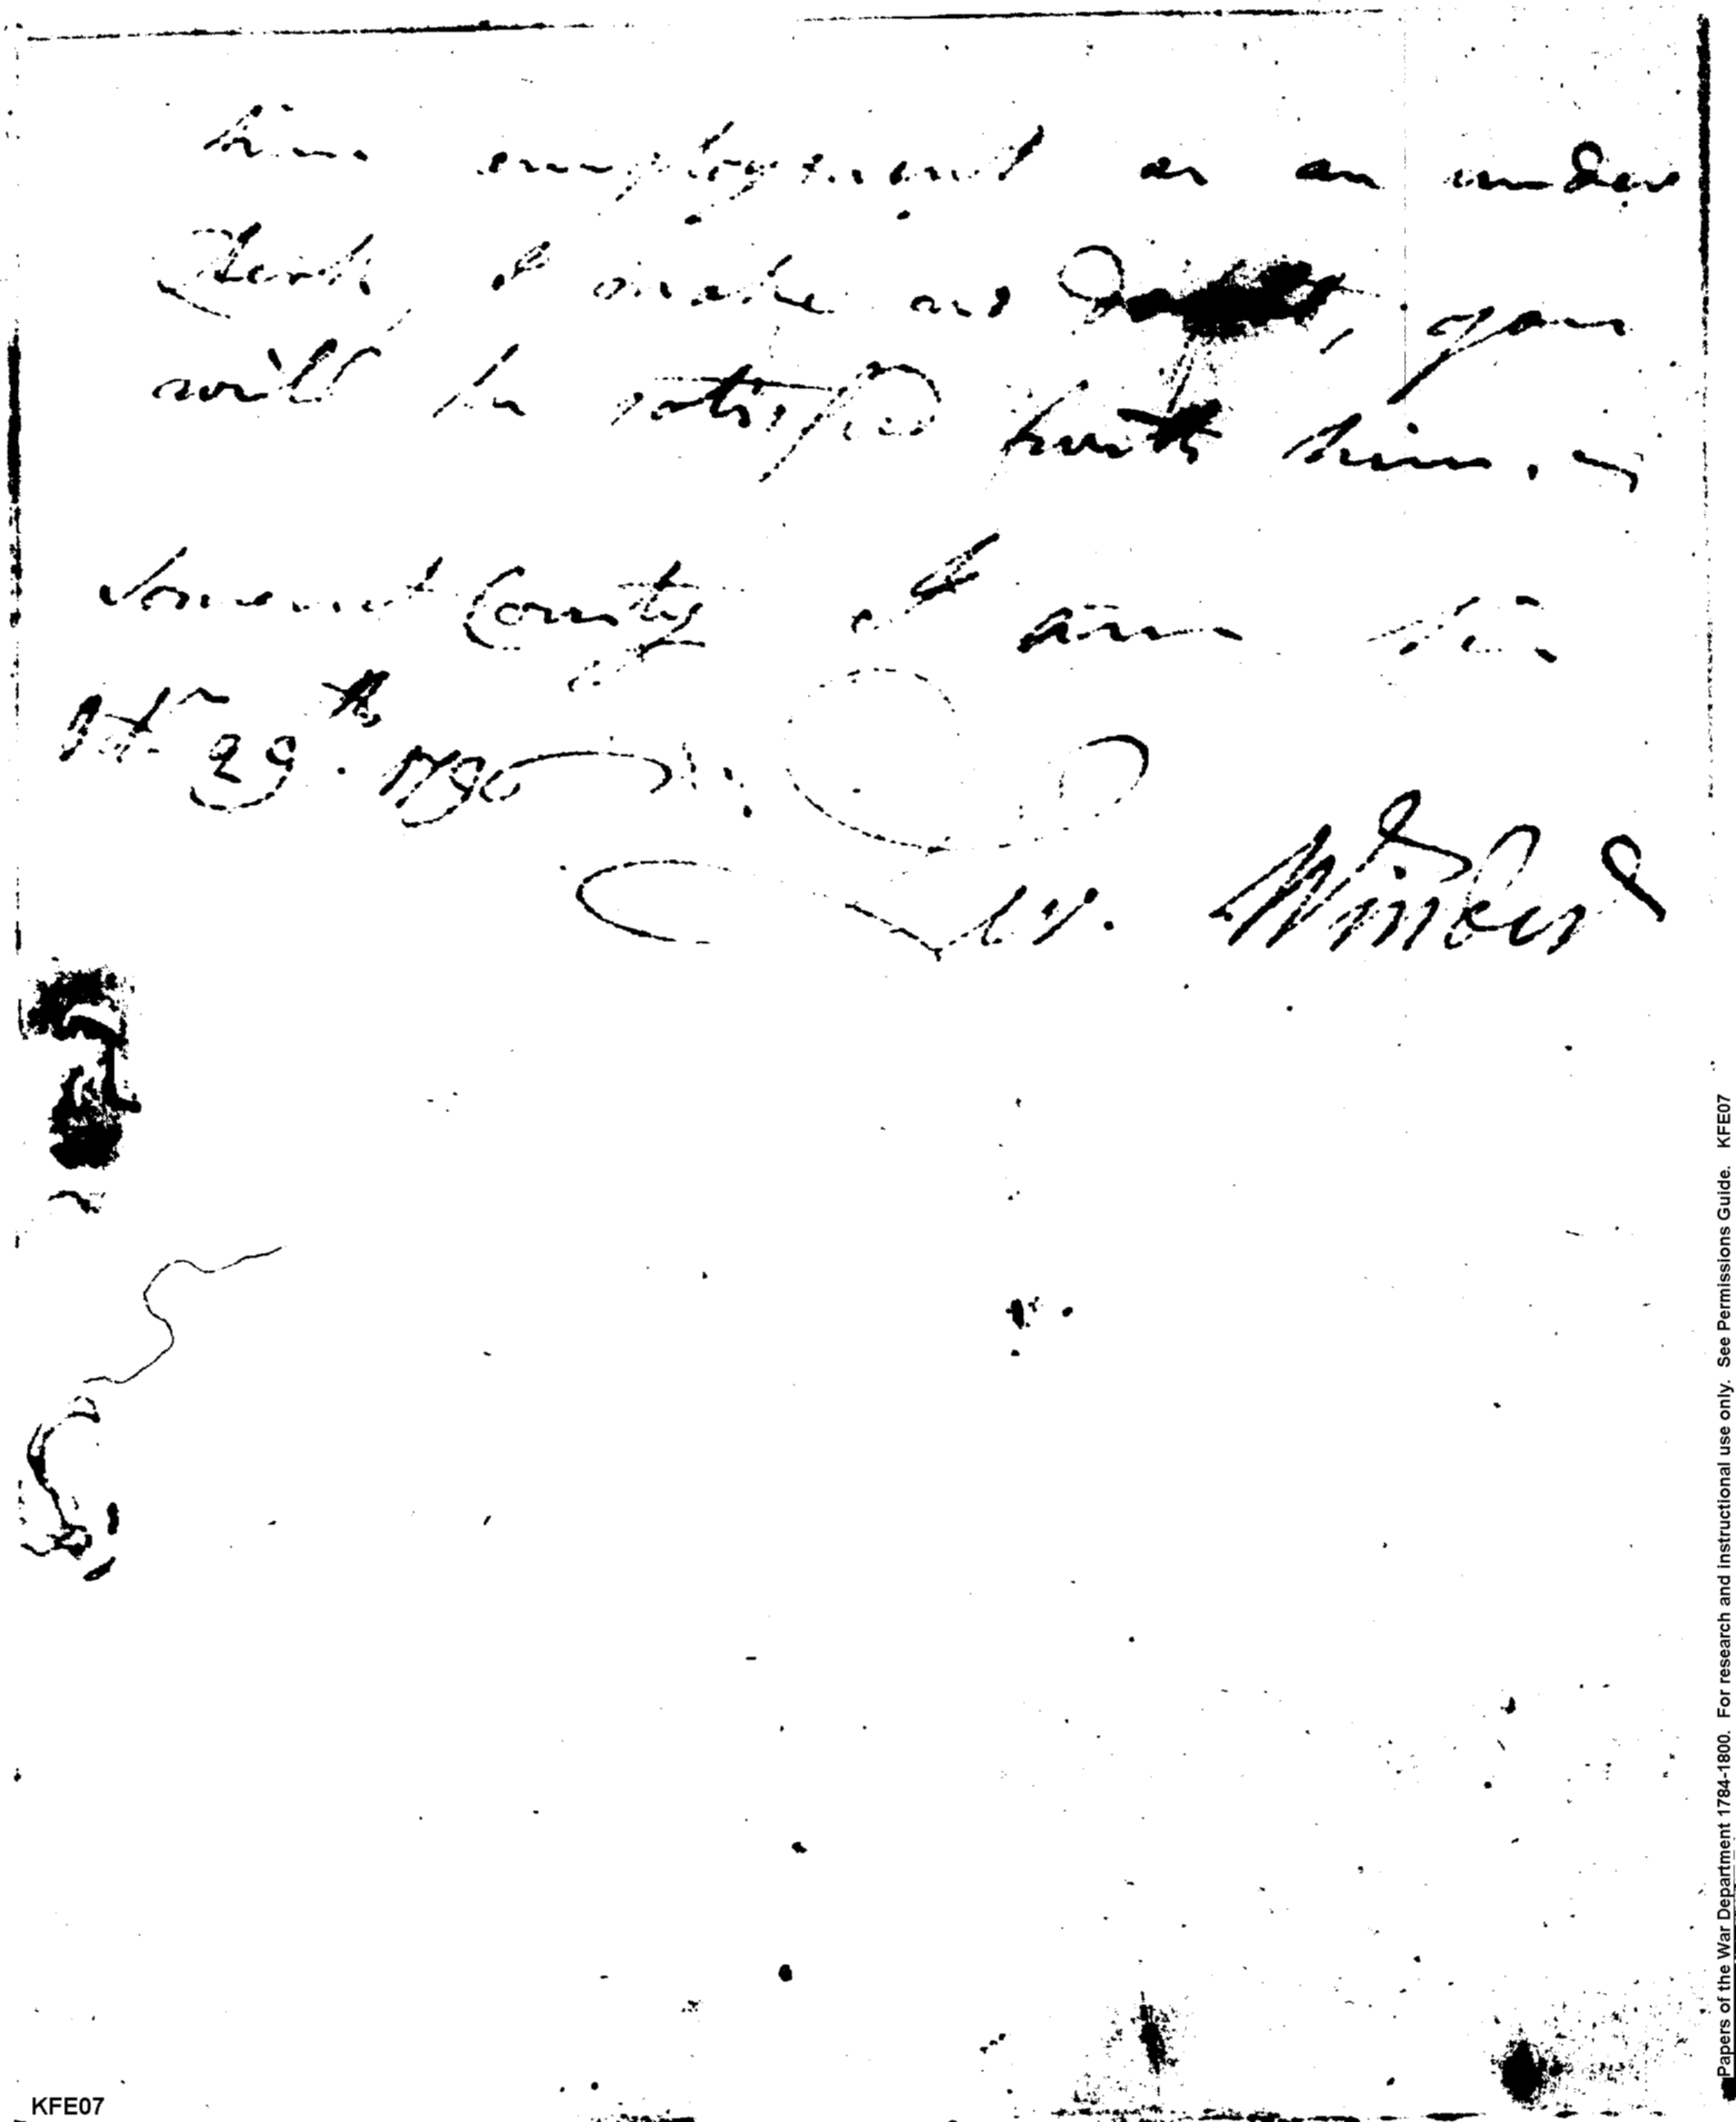 him employment as an under
Clerk, I make no Doubt, you
will be satisfied with him. –
Somerset County I am Sir
29th. 1790
W. Winder
Papers of the War Department 1784-1800. For research and instructional use only. See Permissions Guide. KFE07
KFE07